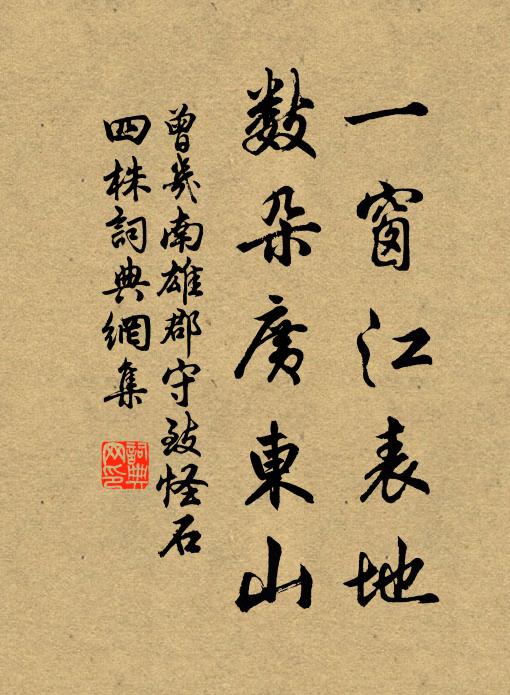 一窗江表地
数朵廣東山
曾幾南雄郡守致怪石
四株詞典網集
詞典网印